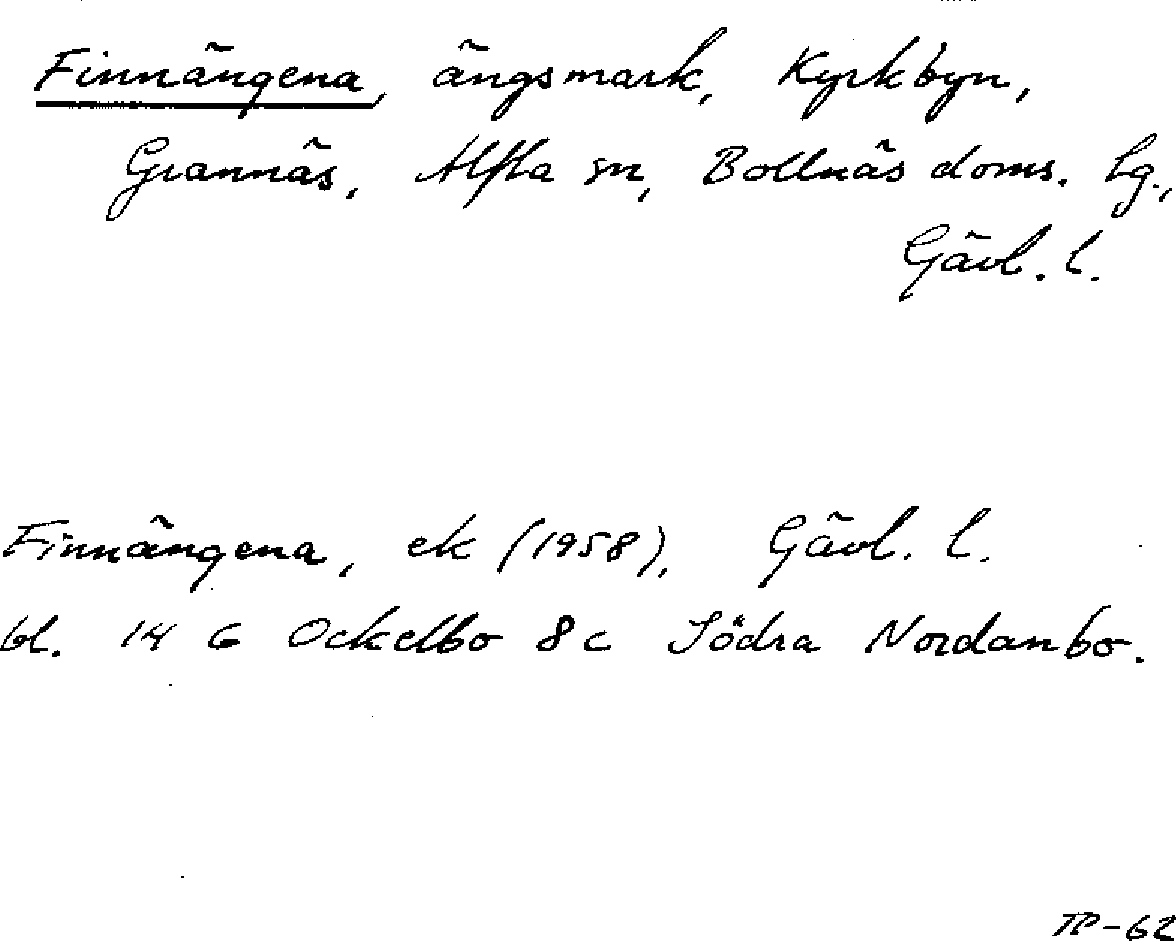 Finnängena, ängsmark, Kyrkbyn,
Grannäs, Alfta sn, Bollnäs doms. lg.,
Gävl. l.
Finnängena, ek (1958), Gävl. l.
bl. 14 G Ockelbo 8c Södra Nordanbo.
TP-62